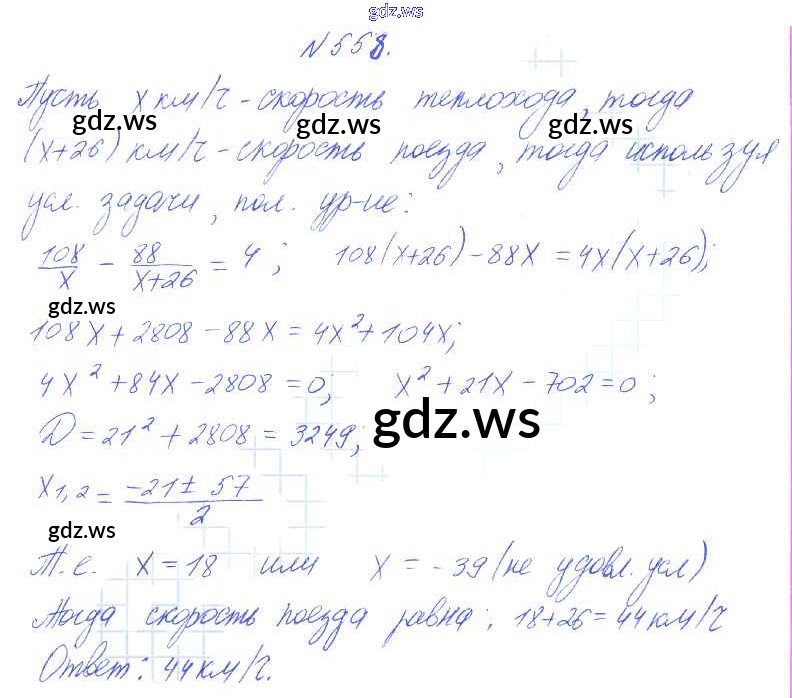 gdz.ws
N 558.
Пусть x км/ч - скорость теплохода, тогда
gdz.ws gdz.ws
(x+26) км/ч - скорость поезда, тогда используя
усл. задачи, пол. ур-ие:
108/x - 88/(x+26) = 4; 108(x+26) - 88x = 4x(x+26);
gdz.ws
108x + 2808 - 88x = 4x² + 104x;
4x² + 84x - 2808 = 0; x² + 21x - 702 = 0;
gdz.ws
D = 21² + 2808 = 3249;
x1,2 = (-21 ± 57)/2
gdz.ws
Т.е. x = 18 или x = -39 (не удовл. усл)
gdz.ws gdz.ws
Тогда скорость поезда равна: 18+26=44 км/ч
Ответ: 44 км/ч.
gdz.ws
gdz.ws